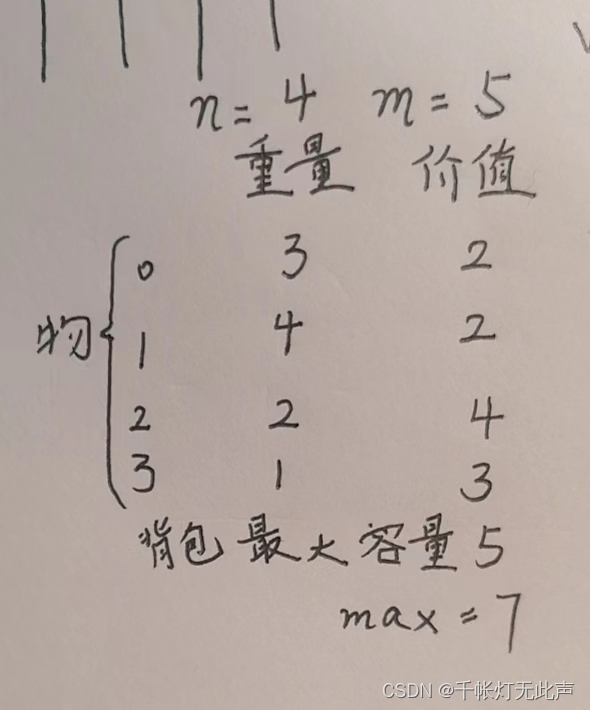 n = 4 m = 5
重量 价值
0 3 2
物 1 4 2
2 2 4
3 1 3
背包最大容量 5
max = 7
CSDN @千帐灯无此声